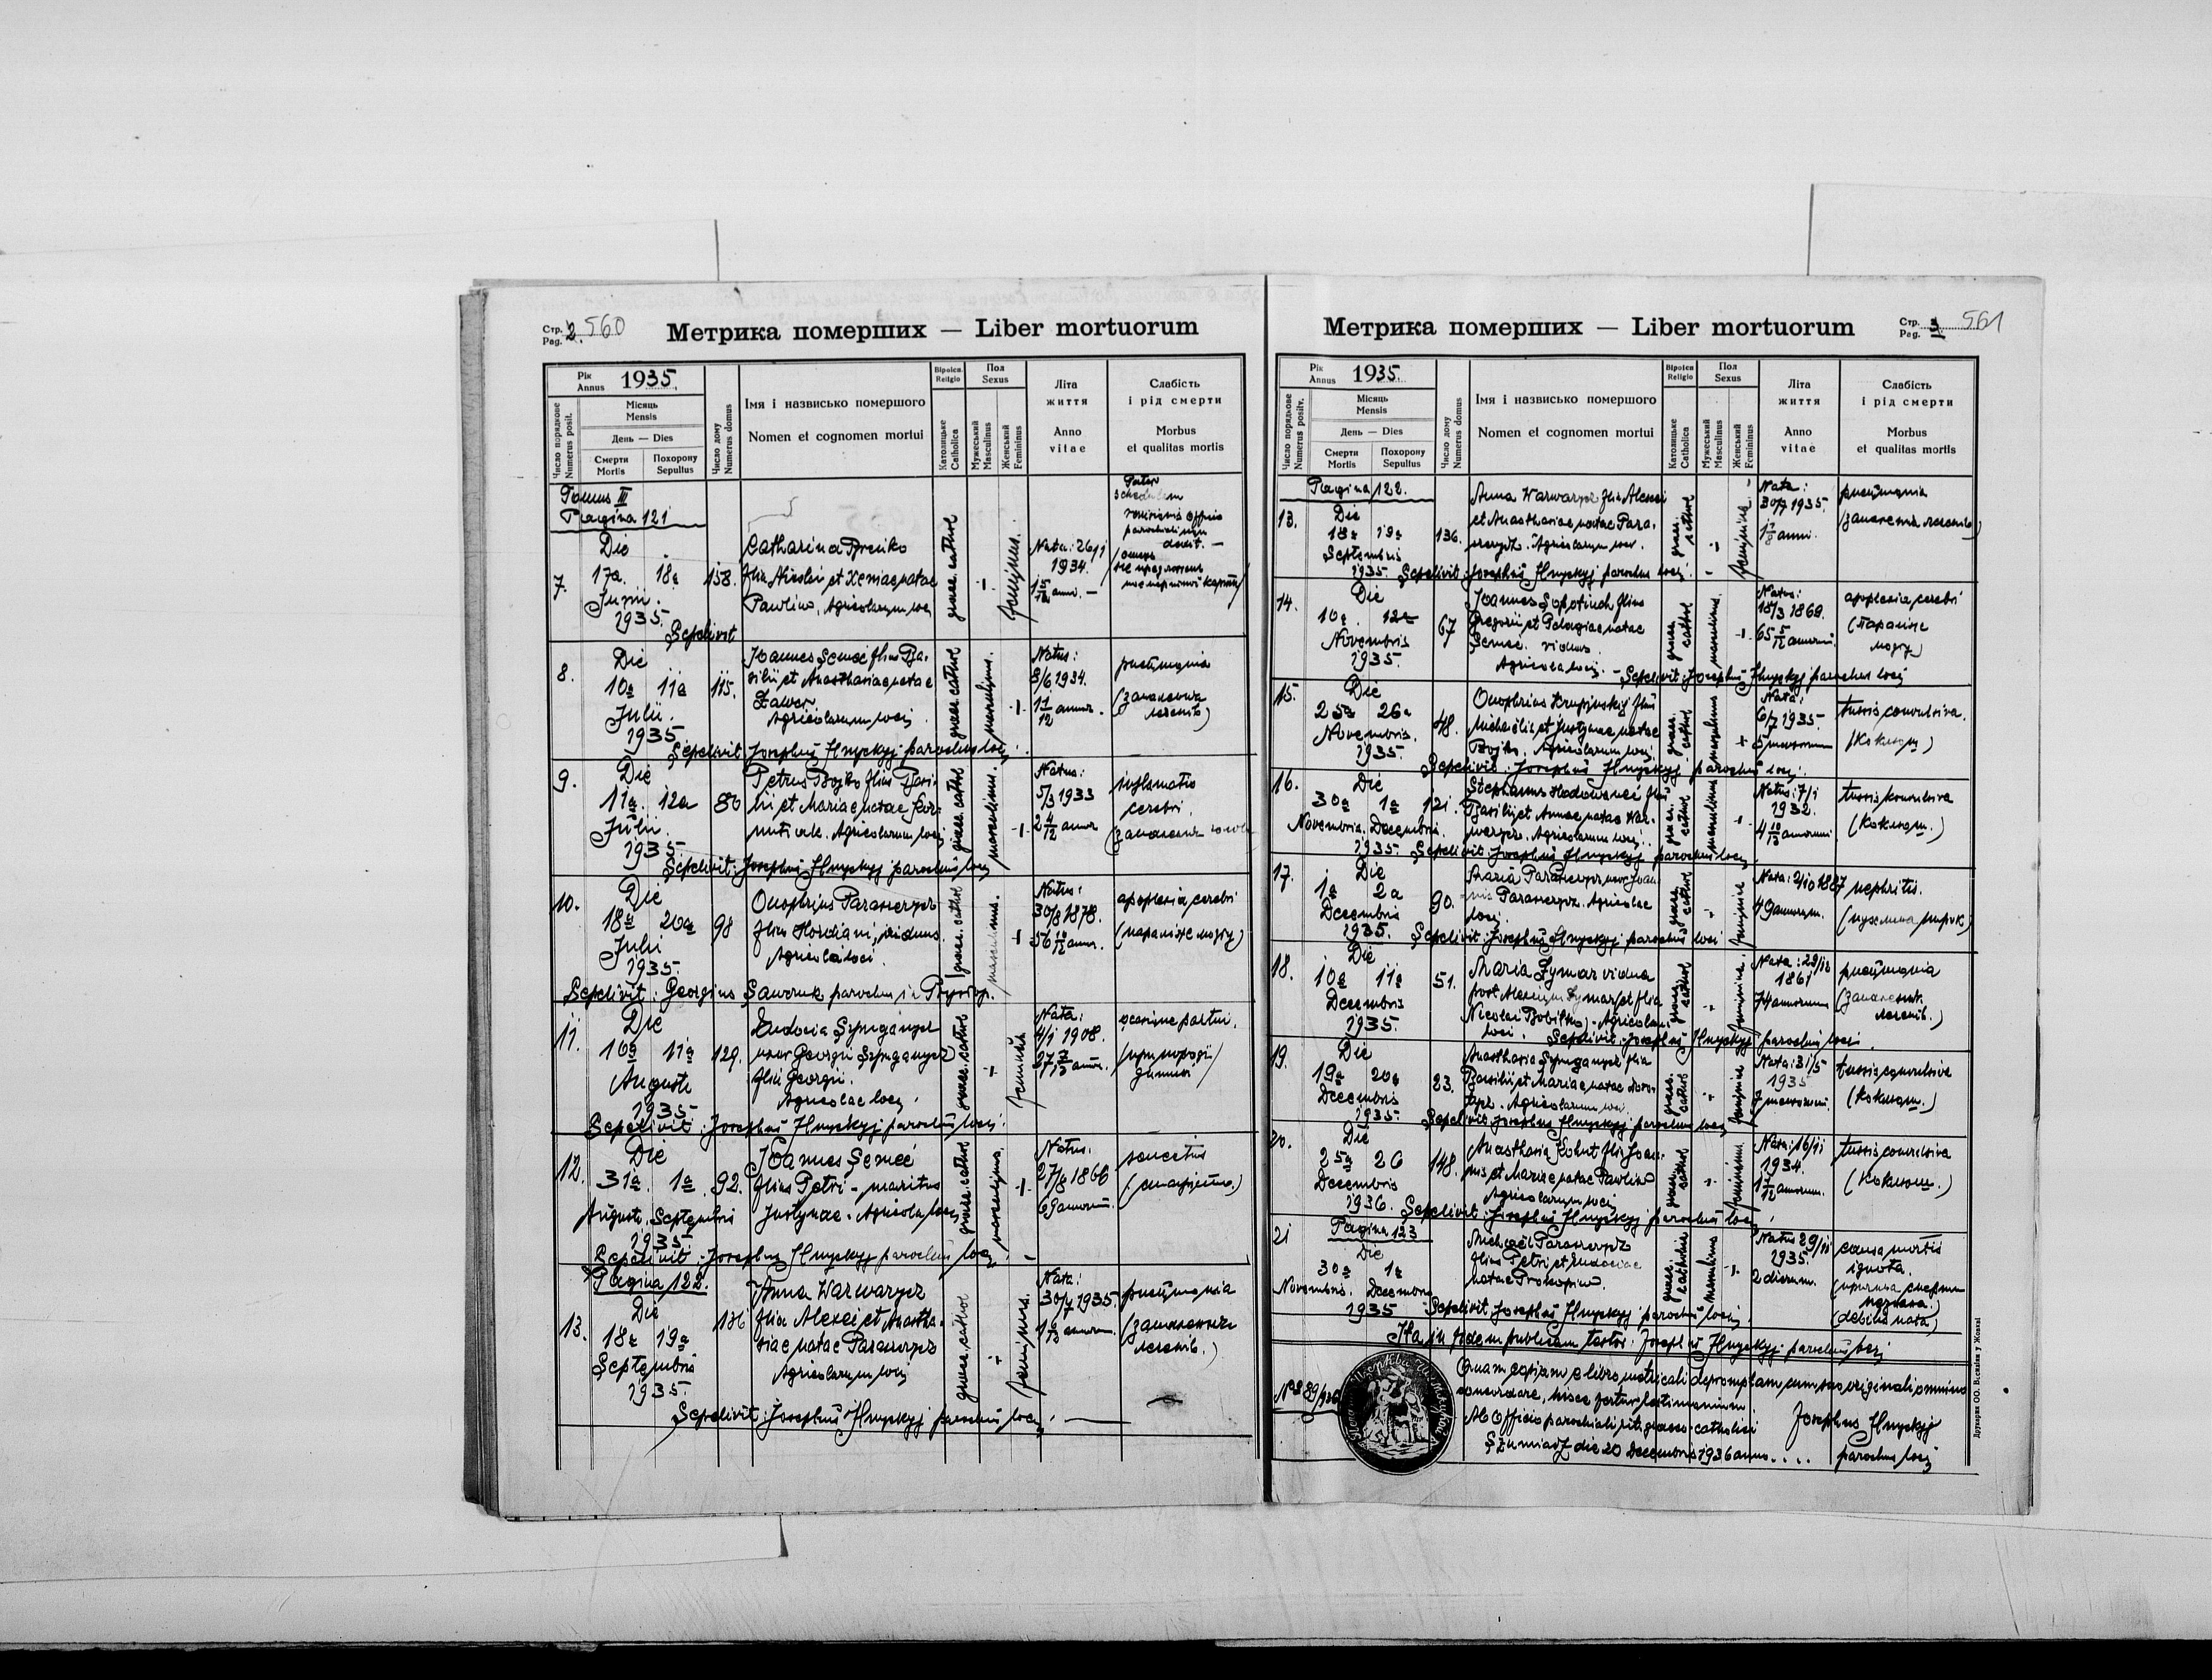 Стр. 2. 560
Pag.
Метрика померших — Liber mortuorum
Рік 1935.
Annus
Місяць
Mensis
День — Dies
Смерти
Mortis
Похорону
Sepultus
Число порядкове
Numerus posit.
Число дому
Numerus domus
Імя і назвисько помершого
Nomen et cognomen mortui
Віроісп.
Religio
Католицьке
Catholica
Пол
Sexus
Мужеський
Masculinus
Женський
Femininus
Літа
життя
Anno
vitae
Слабість
і рід смерти
Morbus
et qualitas mortis
Tomus III
Pagina 121
7.
Die
17a 18a
Junii
1935.
158.
Catharina
filia Nicolai et Xeniae natae
Pawliw, Agricolarum loci
graec. cathol
feminus.
Nata: 26/1
1934.
Pater
schedulam
officio
parochiali non
dedit. —
Sepelivit
8.
Die
10a 11a
Julii.
1935
115.
Joannes Semeé filius Ba-
silii et Anasthasiae natae
Agricolarum loci
graec. cathol
masculinus.
Natus:
8/6 1934.
1 1/12 annor.
pneumonia
(запалення
легенів)
Sepelivit Josephus Hnyckyj parochus loci.
9.
Die
11a. 12a
Julii.
1935
80
Petrus Bojko filius Basi-
lii et Mariae natae
Agricolarum loci
graec. cathol
masculinus.
Natus:
5/3 1933
2 4/12 annor
cerebri.
Sepelivit: Josephus Hnyckyj parochus loci
10.
Die
18a 20a
Julii
1935.
98
Onophrius Parasczycz
filius Hordiani, viduus.
Agricola loci.
graec. cathol
masculinus.
Natus:
30/8 1878.
56 annor.
apoplexia cerebri
(параліж мозгу)
Sepelivit: Georgius Sawczuk parochus in
11.
Die
16a 17a
Augusti
1935
129.
Eudocia Szynganycz
uxor Georgii Szynganycz
filii Georgii.
Agricolae loci.
graec. cathol
Nata:
4/1 1908.
27 7/12 annor.
occasione partus.
(при породі
дитини)
Sepelivit: Josephus Hnyckyj parochus loci.
12.
Die
31a. 1a
Augusti. Septembris
1935
92.
Joannes Semeé
filius Petri - maritus
Justynae. Agricola loci
graec. cathol
masculinus.
Natus.
27/6 1866
69 annorum.
Sepelivit: Josephus Hnyckyj parochus loci. —
Pagina 122.
13.
Die
18a 19a
Septembris
1935.
136
Anna Warwarycz
filia Alexei et Anastha-
siae natae Parasczycz
Agricolarum loci
graec. cathol
feminus.
Nata:
30/7 1935.
pneumonia
(запалення
легенів.)
Sepelivit: Josephus Hnyckyj parochus loci. —
Стр. 3 561
Pag.
Метрика померших — Liber mortuorum
Рік 1935.
Annus
Місяць
Mensis
День — Dies
Смерти
Mortis
Похорону
Sepultus
Число порядкове
Numerus positv.
Число дому
Numerus domus
Імя і назвисько помершого
Nomen et cognomen mortui
Віроісп
Religio
Католицьке
Catholica
Пол
Sexus
Мужеський
Masculinus
Женський
Femininus
Літа
життя
Anno
vitae
Слабість
і рід смерти
Morbus
et qualitas mortis
Pagina 122.
13.
Die
18a 19a
Septembris
1935
136.
Anna Warwarycz filia Alexei
et Anasthasiae natae Para-
sczycz. Agricolarum loci.
graec. cathol
Feminina.
Nata:
30/7 1935.
pneumonia
(запалення легенів)
Sepelivit: Josephus Hnyckyj parochus loci.
14.
Die
10a. 12a
Novembris
1935.
67
Joannes filius
Gregorii et Pelagiae natae
Semeé. viduus
Agricola loci. —
graec. cathol
masculinus.
Natus:
18/3 1869.
65 5/12 annorum
apoplexia cerebri
(параліж
мозгу)
Sepelivit: Josephus Hnyckyj parochus loci
15.
Die
25a 26a
Novembris.
1935
48.
Onophrius Krupinskij filius
Michaelis et Justynae natae
Bojko. Agricolarum loci
graec. cathol
masculinus
Nata:
6/7 1935.
5 mensorum
tussis convulsiva.
(Коклюш)
Sepelivit: Josephus Hnyckyj parochus loci.
16.
Die
30a 1a
Novembris. Decembris.
1935.
121.
Stephanus Hodowaneé filius
Basilij et Annae natae War-
warycz. Agricolarum loci.
graec. cathol
masculinus
Natus: 7/1
1932.
4 annorum
tussis convulsiva
(Коклюш.)
Sepelivit: Josephus Hnyckyj parochus loci.
17.
Die
1a 2a
Decembris
1935.
90.
Maria Parasczycz uxor Joan-
nis Parasczycz. Agricolae
loci.
graec. cathol
feminina
Nata: 2/10 1887
49 annorum.
nephritis.
Sepelivit: Josephus Hnyckyj parochus loci
18.
Die
10a 11a
Decembris
1935.
51.
Maria Lymar vidua
post Alexium Lymar et filia
Nicolai Bobitko - Agricolarum
loci.
graec. cathol
feminina.
Nata: 29/12
1861
74 annorum
pneumonia
(запаленнє
легенів.)
Sepelivit: Josephus Hnyckyj parochus loci.
19.
Die
19a 20a
Decembris
1935.
23.
Anasthasia Szynganycz filia
Basilii et Mariae natae
Agricolarum loci.
graec. cathol
feminina
Nata: 31/5
1935
7 mensorum.
tussis convulsiva
(Коклюш.)
Sepelivit: Josephus Hnyckyj parochus loci
20.
Die
25a 26
Decembris
1936.
148.
Anasthasia Kohut filia Joan-
nis et Mariae natae Pawliw
Agricolarum loci
graec. cathol
feminina.
Nata: 16/11
1934.
1 1/12 annorum.
tussis convulsiva
(Коклюш.)
Sepelivit: Josephus Hnyckyj parochus loci.
21
Pagina 123
Die
30a 1a
Novembris. Decembris
1935
Michael Parasczycz
filius Petri et Eudociae
natae Prokopiw.
graec. catholic
masculinus
Natus 29/11
1935.
2 dierum.
causa mortis
ignota.
(причина смерти
незнана.)
(debilis nata)
Sepelivit Josephus Hnyckyj parochus loci.
Ita in fidem publicam testor: Josephus Hnyckyj parochus loci
Nr. 89/936
Quam copiam e libro metricali depromptam cum suo originali omnino
concordare, hisce fertur testimonium.
Ab Officio parochiali rit. graeco-catholici
Szumiacz die 20 Decembris 1936 anno....
Josephus Hnyckyj
parochus loci
Друкарня ОО. Василіян у Жовкві